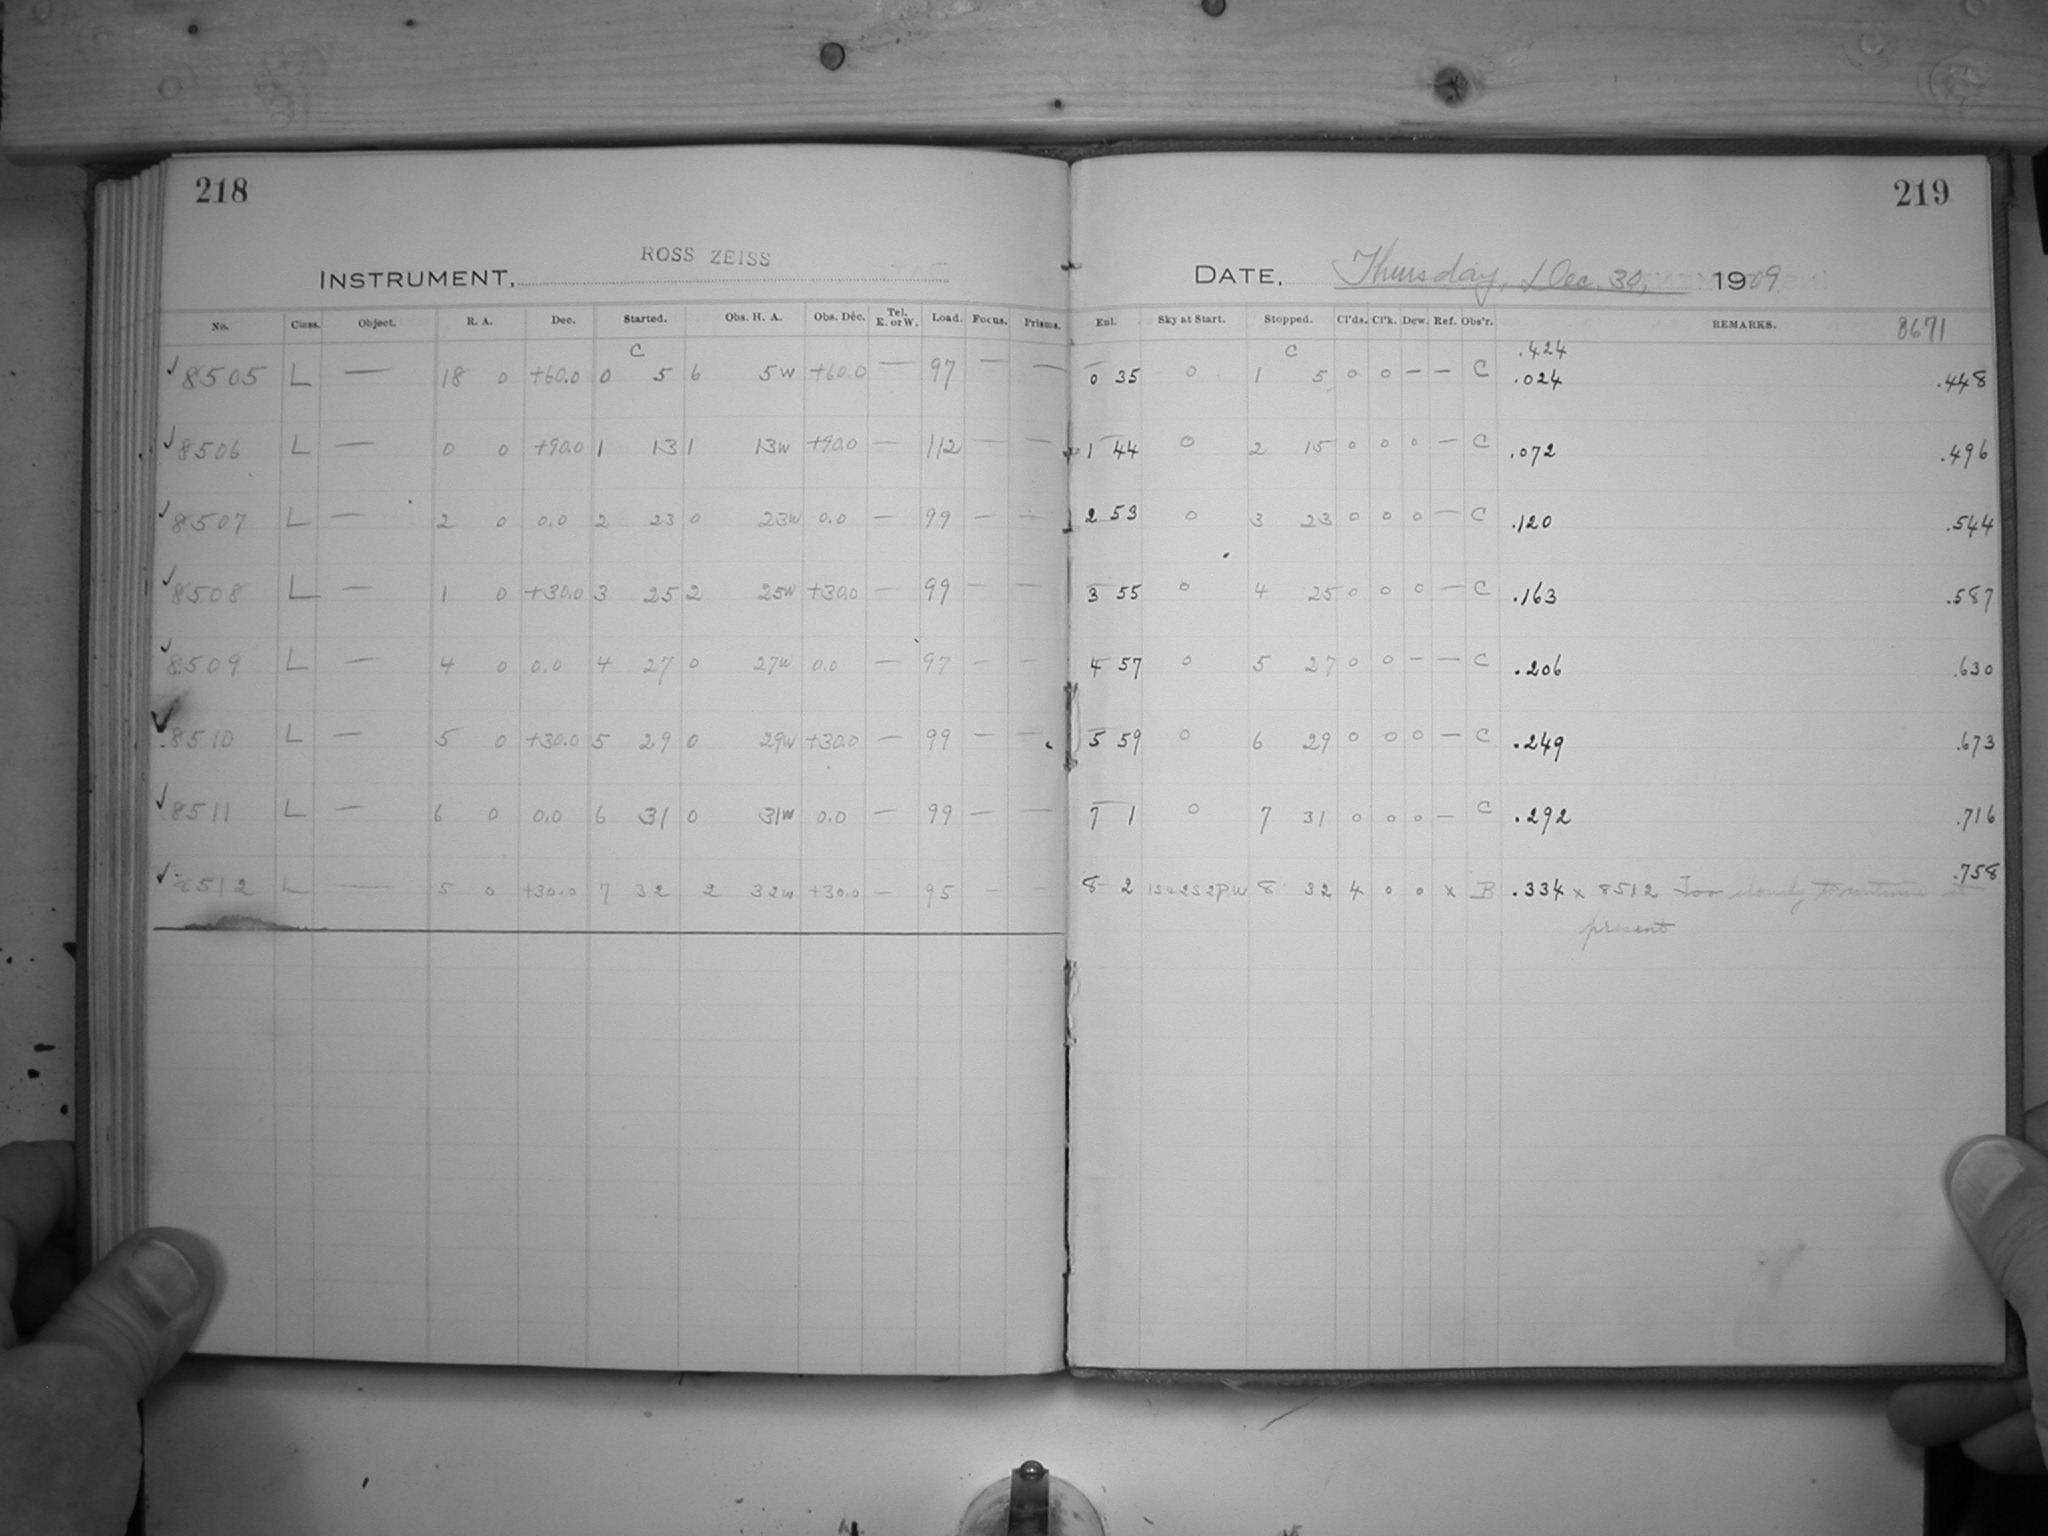 218
ROSS ZEISS
INSTRUMENT,
No. Class. Object. R. A. Dec. Started. Obs. H. A. Obs. Déc. Tel. E. or W. Load. Focus. Prisms.
C
8505 L — 18 0 +60.0 0 5 6 5w +60.0 — 97 — —
8506 L — 0 0 +90.0 1 13 1 13w +90.0 — 112 — —
8507 L — 2 0 0.0 2 23 0 23w 0.0 — 99 — —
8508 L — 1 0 +30.0 3 25 2 25w +30.0 — 99 — —
8509 L — 4 0 0.0 4 27 0 27w 0.0 — 97 — —
8510 L — 5 0 +30.0 5 29 0 29w +30.0 — 99 — —
8511 L — 6 0 0.0 6 31 0 31w 0.0 — 99 — —
8512 L — 5 0 +30.0 7 32 2 32w +30.0 — 95 — —
219
DATE, Thursday, Dec. 30, 1909
Enl. Sky at Start. Stopped. Cl'ds. Cl'k. Dew. Ref. Obs'r. REMARKS. 8671
C .424
0 35 0 1 5 0 0 — — C .024 .448
1 44 0 2 15 0 0 0 — C .072 .496
2 53 0 3 23 0 0 0 — C .120 .544
3 55 0 4 25 0 0 0 — C .163 .587
4 57 0 5 27 0 0 — — C .206 .630
5 59 0 6 29 0 0 0 — C .249 .673
7 1 0 7 31 0 0 0 — C .292 .716
.758
8 2 8 32 4 0 0 x B .334 x 8512 Too cloudy to continue at
present